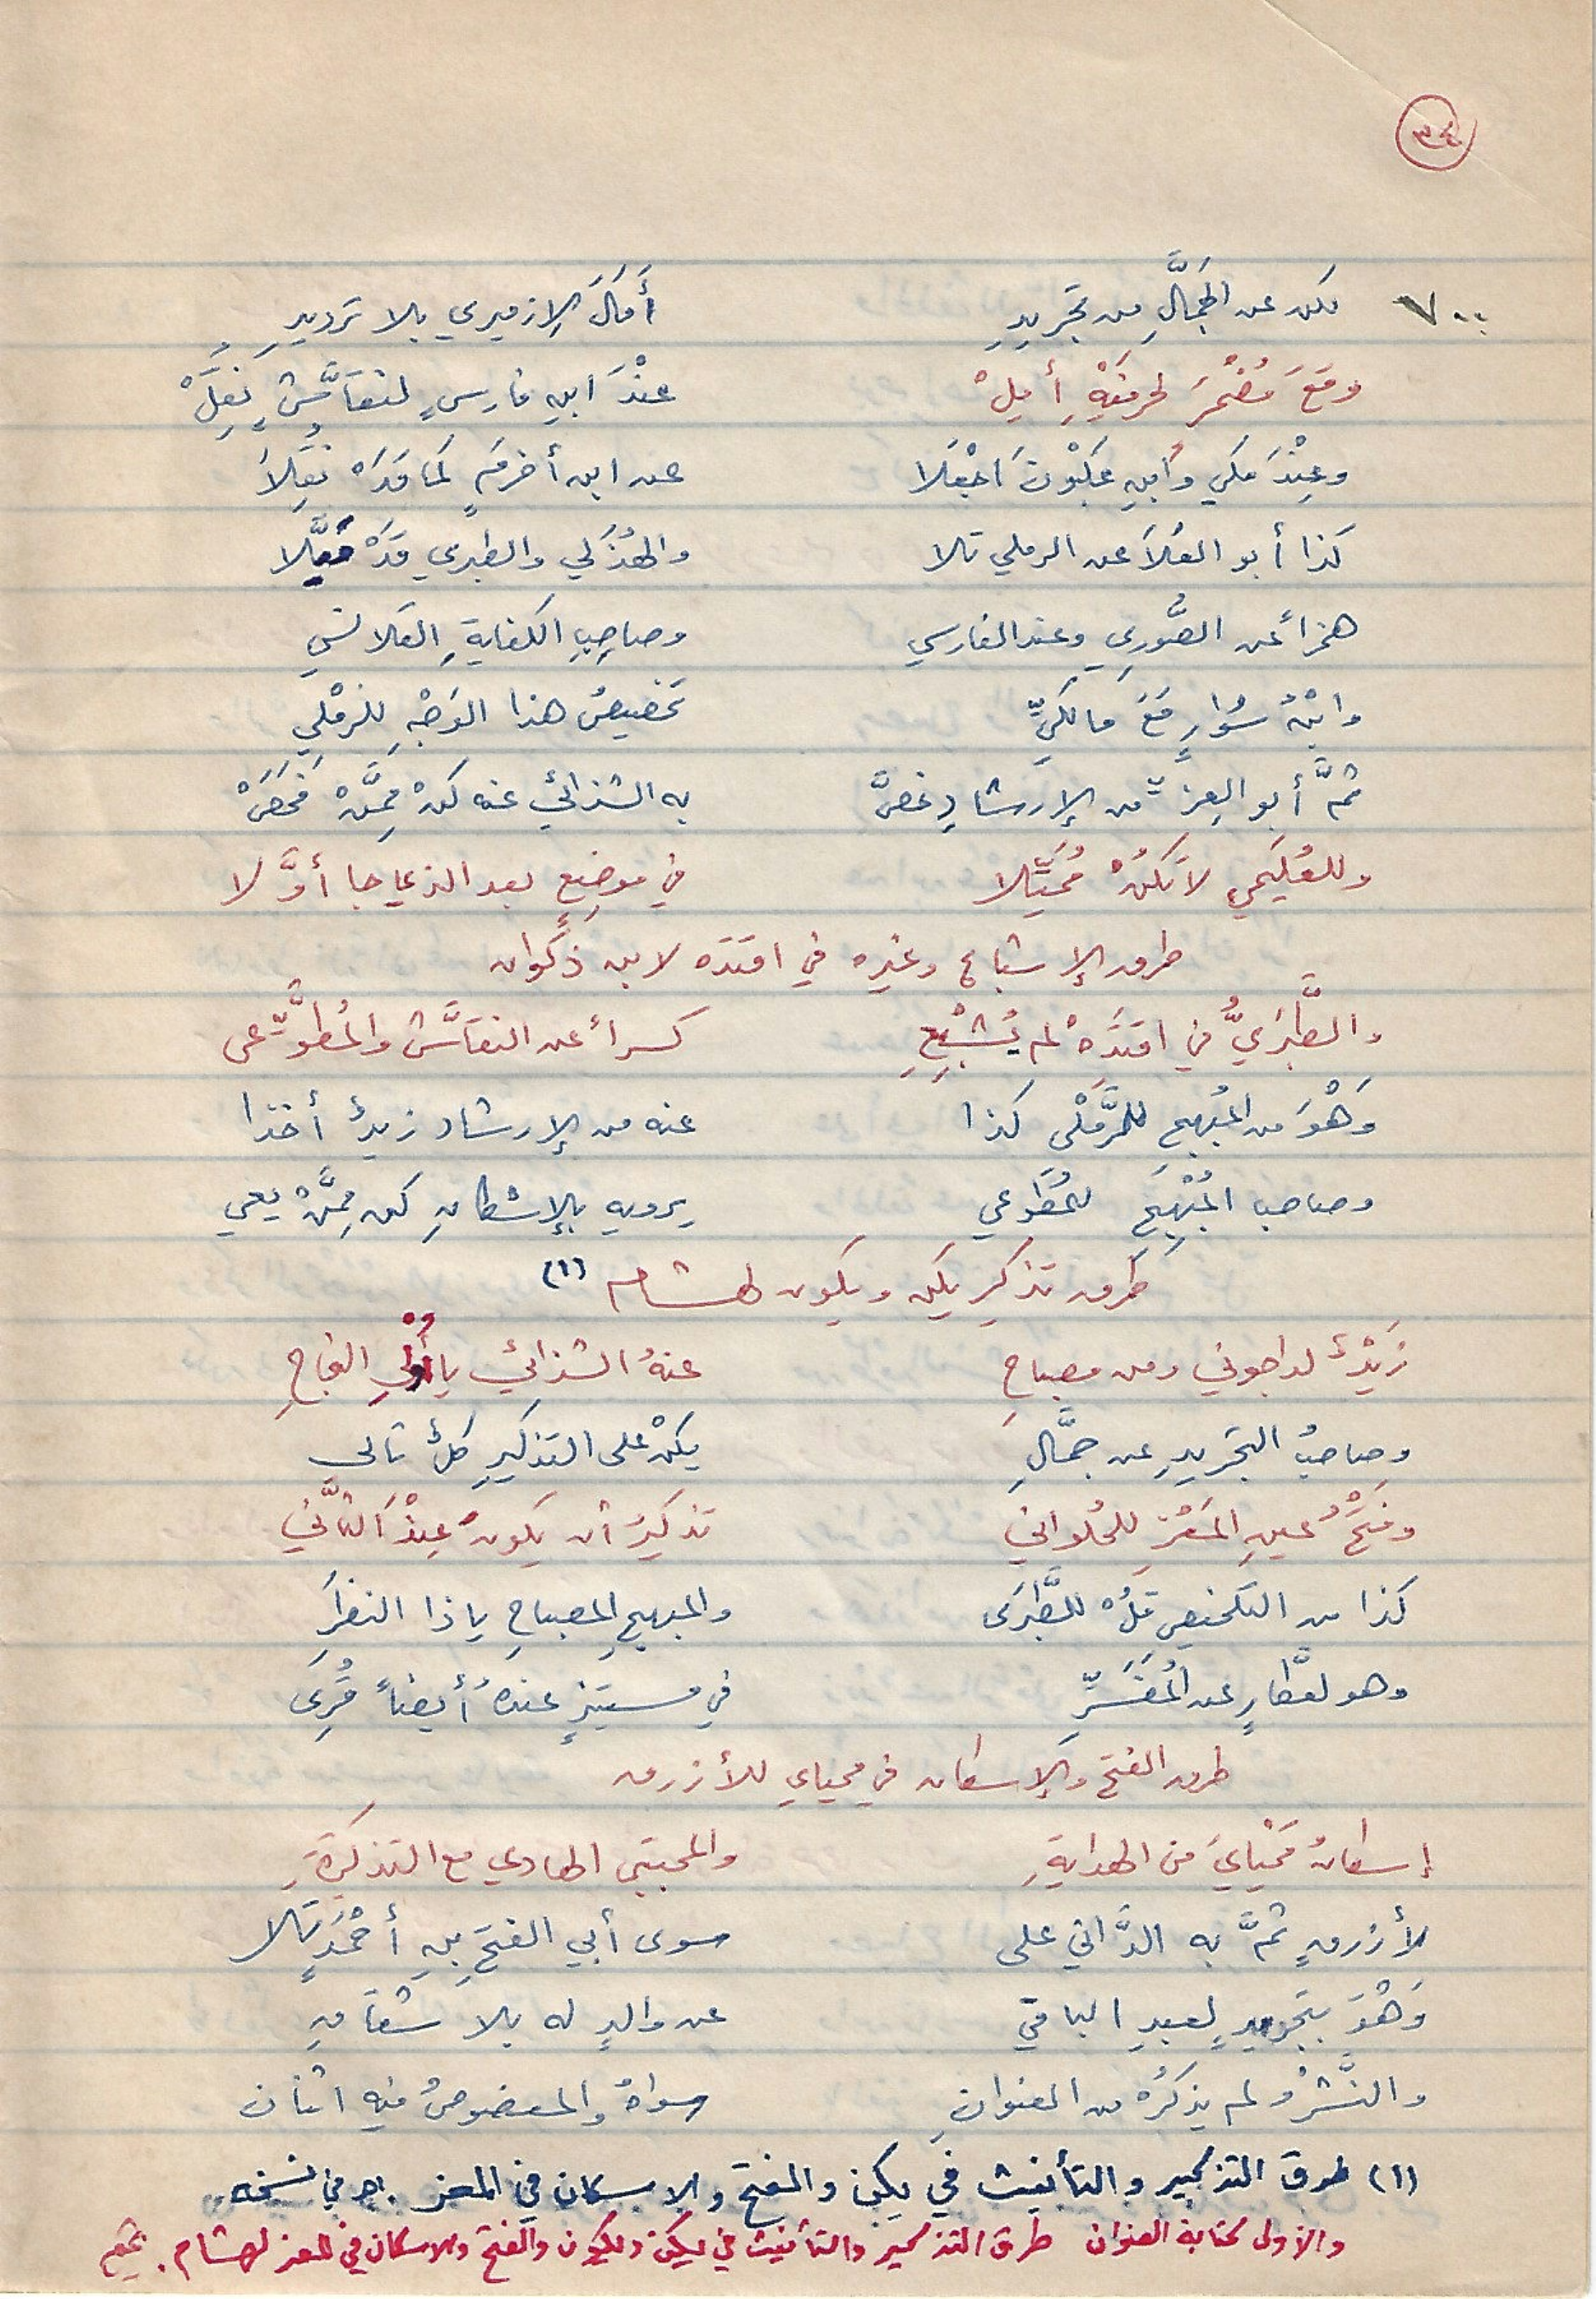 ٣٤
٧٠٠ لكن عن الجَمَّالِ من تجريدِ أَمَالَ الإزميري بلا ترديدِ
ومَعَ مُضْمَرَ لحرفَيْهِ أَمِلْ عنْدَ ابنِ فارسٍ لنقَّاشٍ نُقِلْ
وعِنْدَ مكي وابنِ غلبُونَ اجْعَلا عن ابن أخرمٍ كما قَدْ نُقِلاَ
كذا أبو العُلاَ عن الرملي تلا والهُذَلي والطبري قَدْ مَيَّلا
همزاً عن الصُّورِي وعند الفارسي وصاحِبِ الكفايةِ القلانسي
وابْنُ سُوَارٍ مَعَ مالكيِّ تخصيصُ هذا الوَجْهِ للرمْلِي
ثمَّ أبو العِزّ من الإرشادِ خصَّ به الشذائي عنه كنْ ممَّنْ فَحَصْ
وللعُلَيمي لاَ تَكُنْ مُمَيِّلا في موضِعٍ بعد الذي جا أوَّلا
طرق الإشباع وغيره في اقتده لابن ذكوان
والطَّبَرِيُّ في اقتَدِهْ لم يُشْبِعِ كسراً عن النقَّاش والمُطوَّعي
وَهْوَ من المُبهج للرَّمْلى كذا عنه من الإرشاد زيدٌ أخذا
وصاحب المُبْهِج للمُطَّوعي يرويه بالإسكانِ كن ممَّنْ يعي
طرق تذكير يكن ويكون لهشام (١)
زَيْدٌ لداجوني ومن مصباحِ عنهُ الشذائي يا أُولي النجاحِ
وصاحبُ التجريدِ عن جمَّالِ يكنْ على التذكيرِ كلٌّ تالى
وفتْحُ عينِ المَعْزِ للحُلواني تذكيرُ أن يكونَ عِنْدَ الثَّاني
كذا من التلخيصِ قُلْهُ للطَّبَرى والمبهجِ المصباحِ يا ذا النظَرِ
وهو لعطَّارٍ عن المُفَسِّرِ في مستنيرٍ عندهُ أيضاً قُرِى
طرق الفتح والإسكان في محياي للأزرق
إسكانُ مَحْيايَ من الهدايةِ والمجتبي الهادي مع التذكِرَةِ
لأزرقٍ ثمَّ به الدَّاني على سوى أبي الفتحِ بنِ أحْمَدٍ تَلا
وَهْوَ بتجريدٍ لعبدِ الباقي عن والدٍ له بلا شقاقِ
والنَّشْرُ لم يذكُرْه من العنوانِ سواهُ والمنصوصُ فيه اثنان
(١) طرق التذكير والتأنيث في يكن والفتح والإسكان في المعز . اهـ في نسخه.
والأولى كتابة العنوان طرق التذكير والتأنيث في يكن ويكون والفتح والإسكان في المعز لهشام .